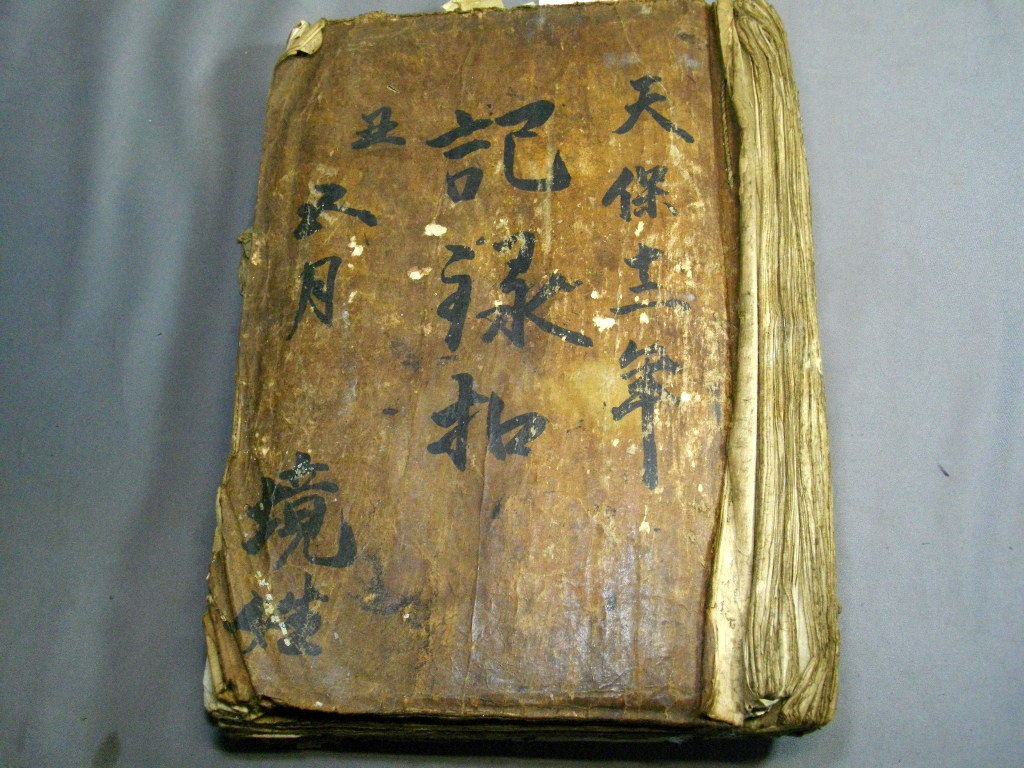 天保十二年
記録扣
丑
正月
境